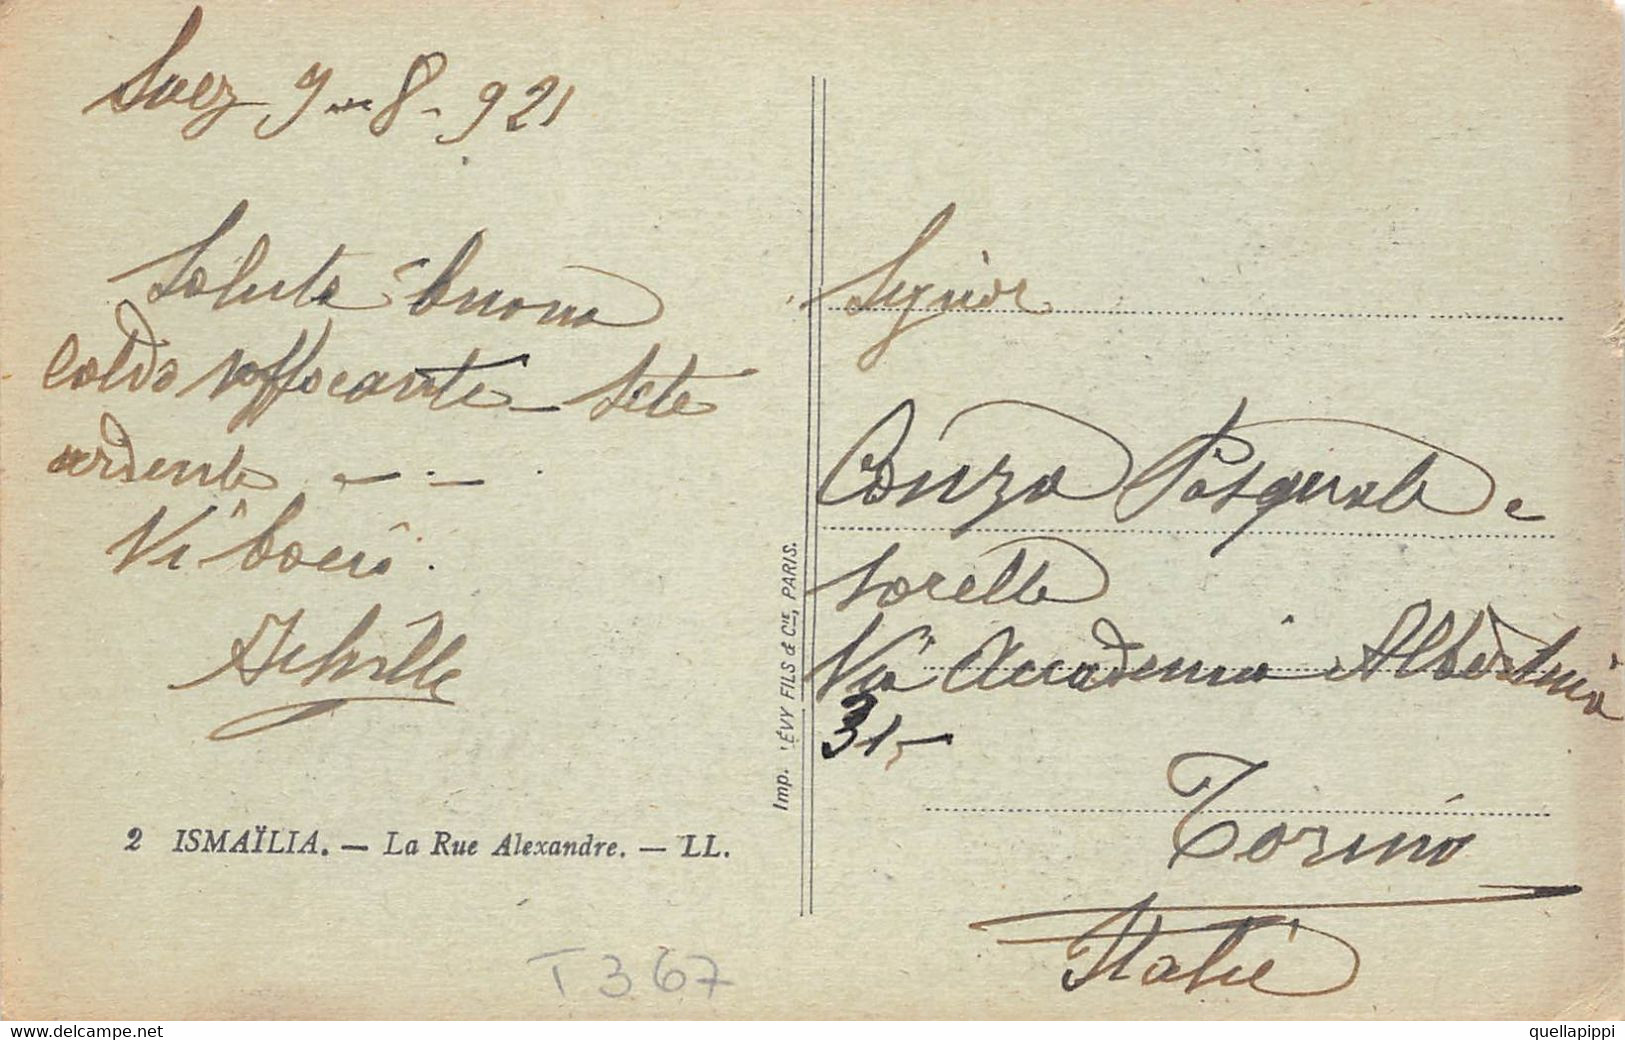 Suez 9-8-921
Salute buona
caldo soffocante - sete
ardente - -
Vi bacio.
Achille
2 ISMAÏLIA. — La Rue Alexandre. — LL.
T 367
Imp. LÉVY FILS & CIE, PARIS.
Signor
Conzo Pasquale e
sorelle
Via Accademia Albertina
31-
Torino
Italie
www.delcampe.net
quellapippi